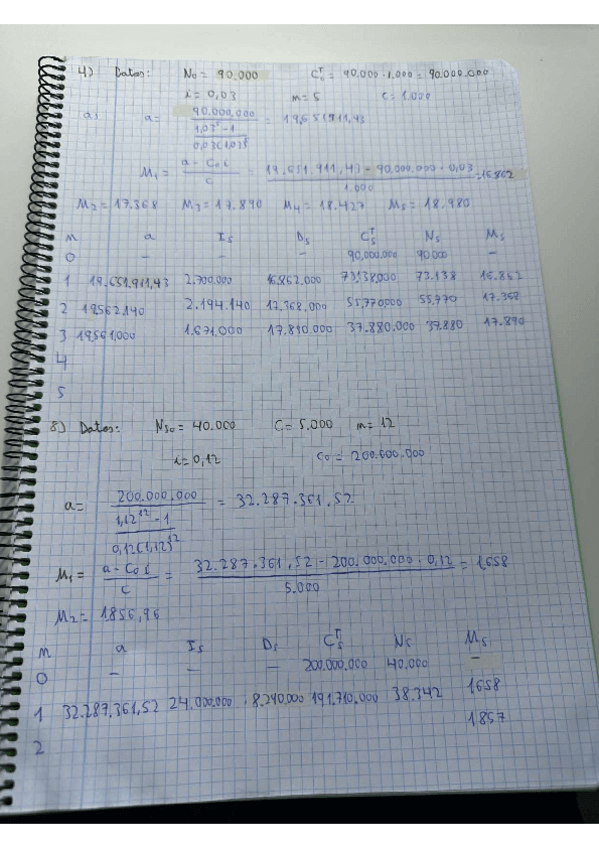 4) Datos: N₀ = 90.000 C₀ᵀ = 90.000 · 1.000 = 90.000.000
i = 0,03 m = 5 C = 1.000
a) a = 90.000.000 / ((1,03⁵ - 1) / (0,03(1,03)⁵) = 19,651,911,43
M₁ = (a - C₀ i) / c = (19.651.911,43 - 90,000,000 · 0,03) / 1.000 = 16.952
M₂ = 17.368 M₃ = 17.890 M₄ = 18.427 M₅ = 18,980
m a Is Ds Csᵀ Ns Ms
0 - - - 90,000,000 90.000 -
1 19.651.911,43 2.700,000 16.862.000 73,138,000 73.138 16.862
2 19562.140 2.194.140 17,368,000 55,770,000 55,770 17.368
3 19,561,000 1.671,000 17.890.000 37.880,000 37,880 17.890
4
5
8) Datos: Ns₀ = 40.000 C = 5,000 m = 12
i = 0,12 C₀ = 200.000.000
a = 200.000,000 / ((1,12¹² - 1) / (0,12(1,12)¹²) = 32.287.361,52
M₁ = (a - C₀ i) / c = (32.287.361,52 - 200.000,000 · 0,12) / 5.000 = 1,658
M₂ = 1856,96
m a Is Ds Csᵀ Ns Ms
0 - - - 200.000,000 40,000 -
1 32.287,361,52 24.000,000 8.290,000 191,710,000 38.342 1658
2 1,857